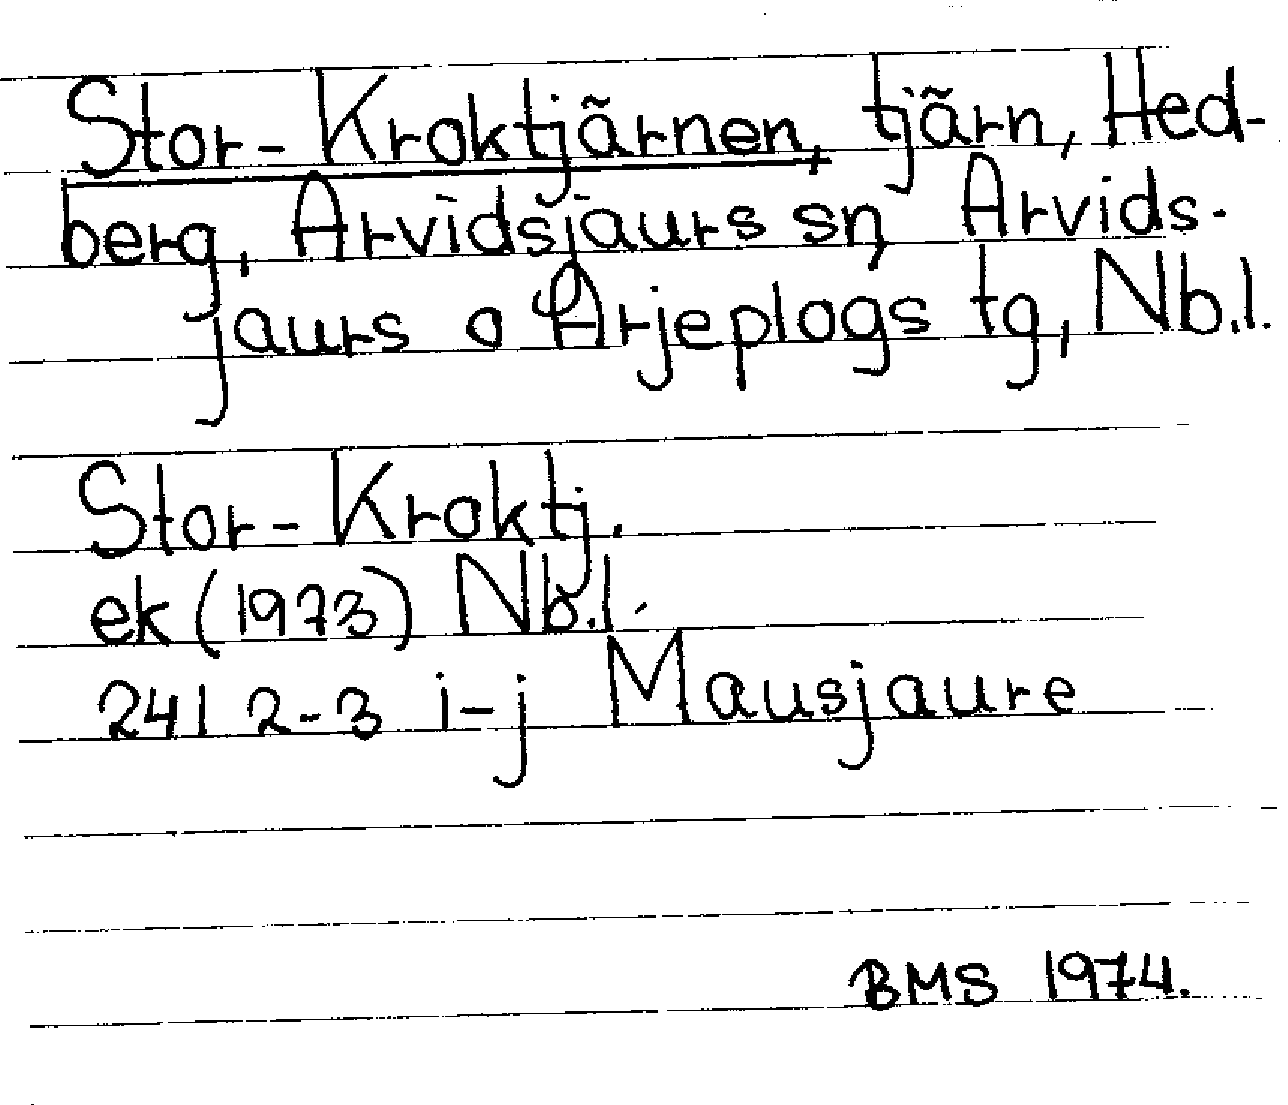 Stor-Kroktjärnen, tjärn, Hed-
berg, Arvidsjaurs sn, Arvids-
jaurs o Arjeplogs tg, Nb.l.
Stor-Kroktj.
ek (1973) Nb.l.
241 2-3 i-j Mausjaure
BMS 1974.